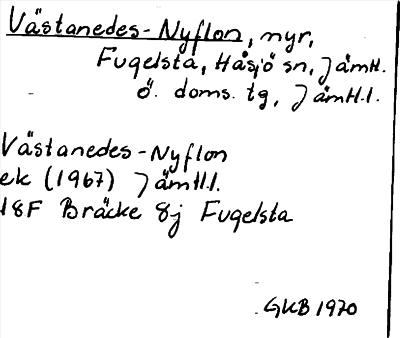 Västanedes-Nyflon, myr,
Fugelsta, Håsjö sn, Jämtl.
ö. doms. tg, Jämtl.l.
Västanedes-Nyflon
ek (1967) Jämtl.l.
18F Bräcke 8j Fugelsta
GKB 1970